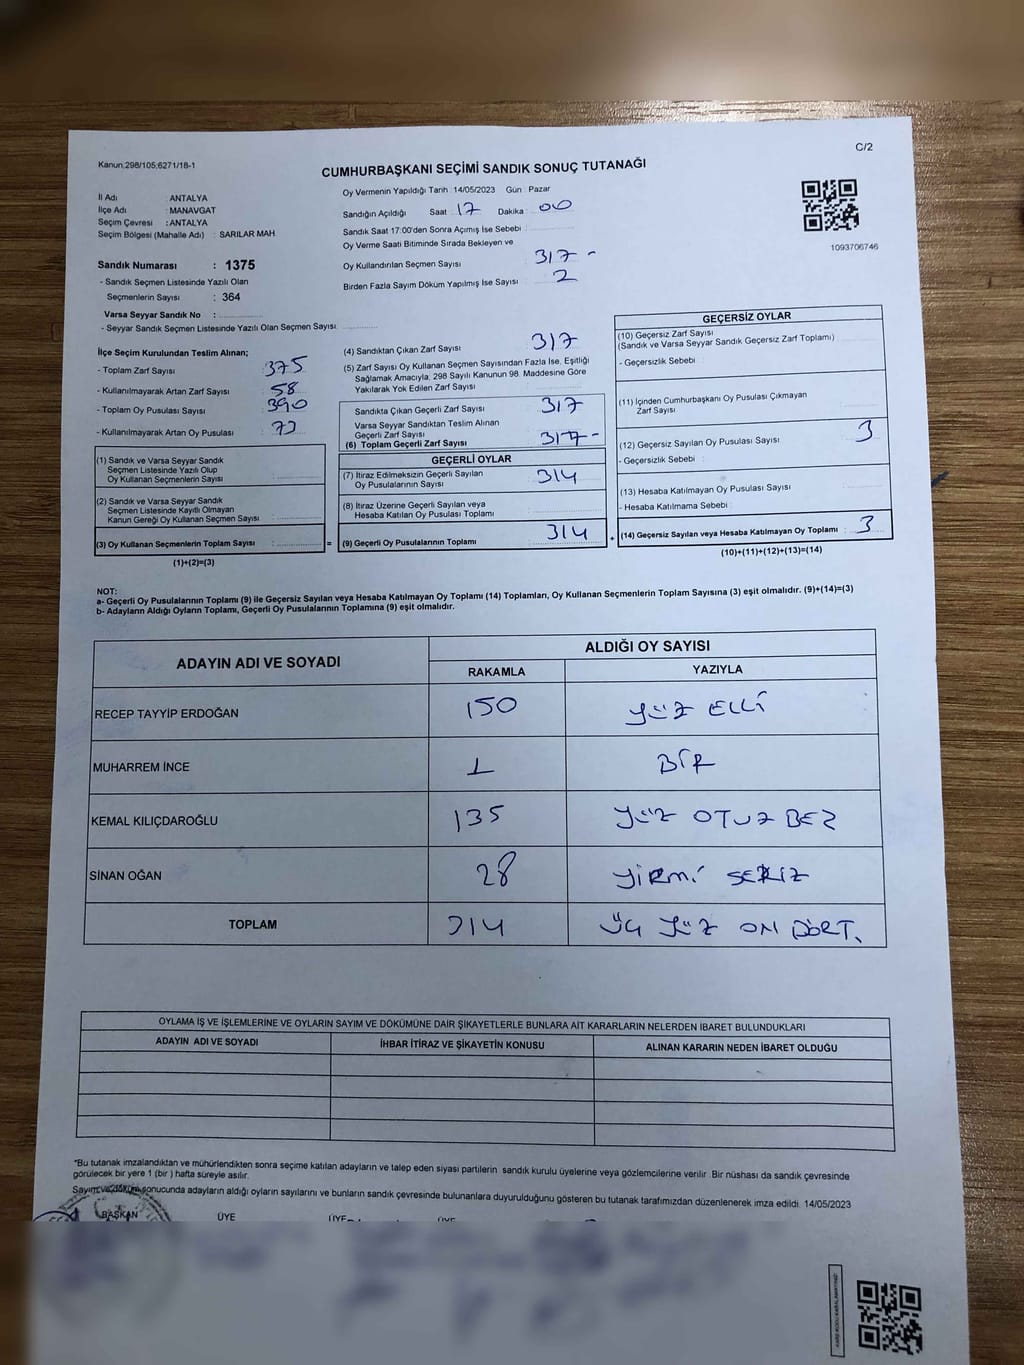 C/2
Kanun:298/105;6271/18-1
CUMHURBAŞKANI SEÇİMİ SANDIK SONUÇ TUTANAĞI
İl Adı : ANTALYA
İlçe Adı : MANAVGAT
Seçim Çevresi : ANTALYA
Seçim Bölgesi (Mahalle Adı) : SARILAR MAH.
Sandık Numarası : 1375
- Sandık Seçmen Listesinde Yazılı Olan
Seçmenlerin Sayısı : 364
Varsa Seyyar Sandık No :
- Seyyar Sandık Seçmen Listesinde Yazılı Olan Seçmen Sayısı:
Oy Vermenin Yapıldığı Tarih :14/05/2023 Gün : Pazar
Sandığın Açıldığı Saat : 17 Dakika : 00
Sandık Saat 17:00'den Sonra Açımış İse Sebebi :
Oy Verme Saati Bitiminde Sırada Bekleyen ve
Oy Kullandırılan Seçmen Sayısı 317 -
Birden Fazla Sayım Döküm Yapılmış İse Sayısı : 2
1093706746
İlçe Seçim Kurulundan Teslim Alınan;
- Toplam Zarf Sayısı : 375
- Kullanılmayarak Artan Zarf Sayısı : 58
- Toplam Oy Pusulası Sayısı : 390
- Kullanılmayarak Artan Oy Pusulası :
(1) Sandık ve Varsa Seyyar Sandık
Seçmen Listesinde Yazılı Olup
Oy Kullanan Seçmenlerin Sayısı :
(2) Sandık ve Varsa Seyyar Sandık
Seçmen Listesinde Kayıtlı Olmayan
Kanun Gereği Oy Kullanan Seçmen Sayısı :
(3) Oy Kullanan Seçmenlerin Toplam Sayısı :
(1)+(2)=(3)
=
(4) Sandıktan Çıkan Zarf Sayısı : 317
(5) Zarf Sayısı Oy Kullanan Seçmen Sayısından Fazla İse, Eşitliği
Sağlamak Amacıyla, 298 Sayılı Kanunun 98. Maddesine Göre
Yakılarak Yok Edilen Zarf Sayısı :
Sandıkta Çıkan Geçerli Zarf Sayısı : 317
Varsa Seyyar Sandıktan Teslim Alınan
Geçerli Zarf Sayısı :
(6) Toplam Geçerli Zarf Sayısı : 317 -
GEÇERLİ OYLAR
(7) İtiraz Edilmeksizin Geçerli Sayılan
Oy Pusulalarının Sayısı : 314
(8) İtiraz Üzerine Geçerli Sayılan veya
Hesaba Katılan Oy Pusulası Toplamı :
(9) Geçerli Oy Pusulalarının Toplamı : 314
+
GEÇERSİZ OYLAR
(10) Geçersiz Zarf Sayısı
(Sandık ve Varsa Seyyar Sandık Geçersiz Zarf Toplamı) :
- Geçersizlik Sebebi :
(11) İçinden Cumhurbaşkanı Oy Pusulası Çıkmayan
Zarf Sayısı :
(12) Geçersiz Sayılan Oy Pusulası Sayısı : 3
- Geçersizlik Sebebi :
(13) Hesaba Katılmayan Oy Pusulası Sayısı :
- Hesaba Katılmama Sebebi :
(14) Geçersiz Sayılan veya Hesaba Katılmayan Oy Toplamı : 3
(10)+(11)+(12)+(13)=(14)
NOT:
a- Geçerli Oy Pusulalarının Toplamı (9) ile Geçersiz Sayılan veya Hesaba Katılmayan Oy Toplamı (14) Toplamları, Oy Kullanan Seçmenlerin Toplam Sayısına (3) eşit olmalıdır. (9)+(14)=(3)
b- Adayların Aldığı Oyların Toplamı, Geçerli Oy Pusulalarının Toplamına (9) eşit olmalıdır.
ADAYIN ADI VE SOYADI ALDIĞI OY SAYISI
RAKAMLA YAZIYLA
RECEP TAYYİP ERDOĞAN 150 YÜZ ELLİ
MUHARREM İNCE 1 BİR
KEMAL KILIÇDAROĞLU 135 YÜZ OTUZ BEŞ
SİNAN OĞAN 28 YİRMİ SEKİZ
TOPLAM 314 ÜÇ YÜZ ON DÖRT.
OYLAMA İŞ VE İŞLEMLERİNE VE OYLARIN SAYIM VE DÖKÜMÜNE DAİR ŞİKAYETLERLE BUNLARA AİT KARARLARIN NELERDEN İBARET BULUNDUKLARI
ADAYIN ADI VE SOYADI İHBAR İTİRAZ VE ŞİKAYETİN KONUSU ALINAN KARARIN NEDEN İBARET OLDUĞU
*Bu tutanak imzalandıktan ve mühürlendikten sonra seçime katılan adayların ve talep eden siyasi partilerin sandık kurulu üyelerine veya gözlemcilerine verilir. Bir nüshası da sandık çevresinde
görülecek bir yere 1 (bir ) hafta süreyle asılır.
Sayım ve döküm sonucunda adayların aldığı oyların sayılarını ve bunların sandık çevresinde bulunanlara duyurulduğunu gösteren bu tutanak tarafımızdan düzenlenerek imza edildi. 14/05/2023
BAŞKAN ÜYE ÜYE ÜYE